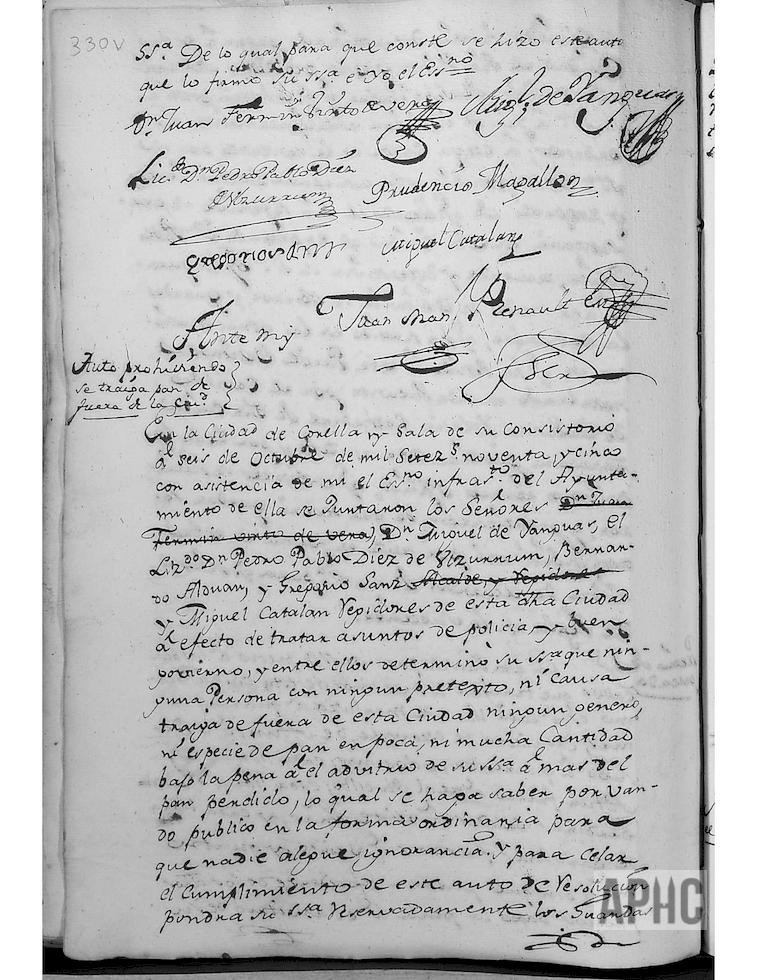 330v
SSª. De lo qual para que conste se hizo este auto
que lo firmó su ssª e Yo el Essno
Dn. Juan Fermin Vinto de vera Migl. de Yanguas
Licdo. Dn Pedro Pablo Diez Prudencio Magallon
de Ulzurrum
Gregorio Sanz Miguel Catalan
Ante my Juan Man Renault
Essno
Auto prohiviendo
se traiga pan de
fuera de la Ciud.
En la Ciudad de Corella y Sala de su Consistorio
á seis de Octubre de mil Setezs. noventa, y cinco
con asistencia de mi el Esno infrasto del Ayunta-
miento de ella se Juntaron los Señores Dn Juan
Fermin vinto de vera, Dn. Miguel de Yanguas, el
Lizdo Dn Pedro Pablo Díez de Ulzurrum, Bernar-
do Alduan, y Gregorio Sanz Alcalde, y Rejidores
y Miguel Catalan Rejidores de esta dha Ciudad
á efecto de tratar asuntos de policia, y buen
govierno, y entre ellos determinó su ssª que nin-
guna Persona con ningun pretexto, ni causa
traiga de fuera de esta Ciudad ningun genero,
ni especie de pan en poca, ni mucha Cantidad
bajo la pena á el advitrio de su ssª á mas del
pan perdido, lo qual se haga saber por van-
do publico en la forma ordinaria para
que nadie alegue ignorancia. Y para celar
el Cumplimiento de este auto de resolucion
pondra su ssª reservadamente los Guardas
APHC